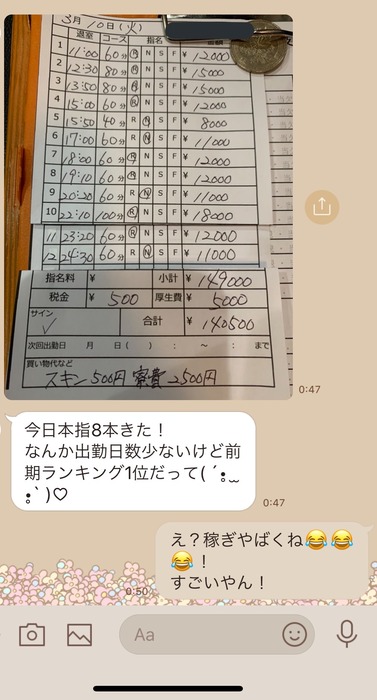 3月10日(火)
退室 コース 指名 金額
1 11:00 60分 R N S F ¥12000
2 12:30 80分 R N S F ¥15000
3 13:50 80分 R N S F ¥15000
4 15:00 60分 R N S F ¥12000
5 15:50 40分 R N S F ¥8000
6 17:00 60分 R N S F ¥11000
7 18:00 60分 R N S F ¥12000
8 19:10 60分 R N S F ¥12000
9 20:20 60分 R N S F ¥11000
10 22:10 100分 R N S F ¥18000
11 23:20 60分 R N S F ¥12000
12 24:30 60分 R N S F ¥11000
指名料 ¥ 小計 ¥149000
税金 ¥500 厚生費 ¥5000
サイン 合計 ¥140500
次回出勤日 月 日( ) : ~ : まで
買い物代など
スキン500円 寮費2500円
0:47
今日本指8本きた!
なんか出勤日数少ないけど前
期ランキング1位だって( ´:̥ ̫
:̥` )♡
0:47
え?稼ぎやばくね😂😂
😂!
すごいやん!
0:50
Aa